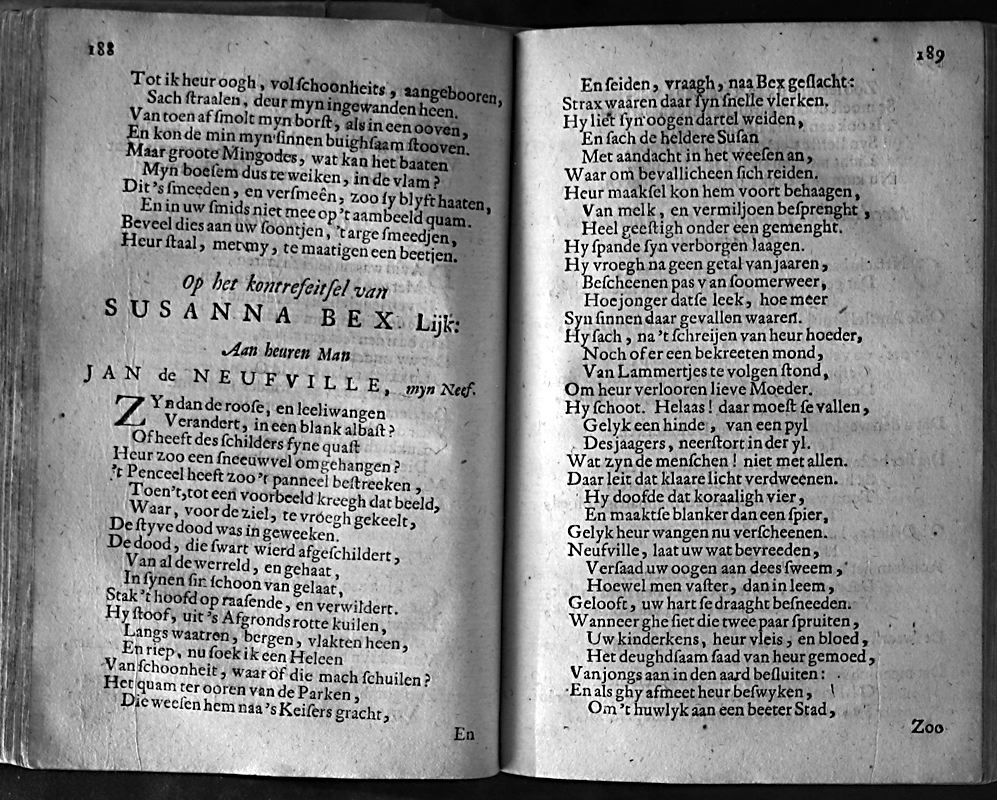 188
Tot ik heur oogh, vol schoonheits, aangebooren,
Sach straalen, deur myn ingewanden heen.
Van toen af smolt myn borst, als in een ooven,
En kon de min myn sinnen buighsaam stooven.
Maar groote Mingodes, wat kan het baaten
Myn boesem dus te weiken, in de vlam?
Dit 's smeeden, en versmeên, zoo sy blyft haaten,
En in uw smids niet mee op 't aambeeld quam.
Beveel dies aan uw soontjen, 't arge smeedjen,
Heur staal, met my, te maatigen een beetjen.
Op het konterfeitsel van
SUSANNA BEX Lijk:
Aan heuren Man
JAN de NEUFVILLE, myn Neef.
ZYn dan de roose, en leeliwangen
Verandert, in een blank albast?
Of heeft des schilders fyne quast
Heur zoo een sneeuwvel omgehangen?
't Penceel heeft zoo 't panneel bestreeken,
Toen 't, tot een voorbeeld kreegh dat beeld,
Waar, voor de ziel, te vroegh gekeelt,
De styve dood was in geweeken.
De dood, die swart wierd afgeschildert,
Van al de werreld, en gehaat,
In synen sin schoon van gelaat,
Stak 't hoofd op raasende, en verwildert.
Hy stoof, uit 's Afgronds rotte kuilen,
Langs waatren, bergen, vlakten heen,
En riep, nu soek ik een Heleen
Van schoonheit, waar of die mach schuilen?
Het quam ter ooren van de Parken,
Die weesen hem naa 's Keisers gracht,
En
189
En seiden, vraagh, naa Bex geslacht:
Strax waaren daar syn snelle vlerken.
Hy liet syn oogen dartel weiden,
En sach de heldere Susan
Met aandacht in het weesen an,
Waar om bevallicheen sich reiden.
Heur maaksel kon hem voort behaagen,
Van melk, en vermiljoen besprenght,
Heel geestigh onder een gemenght.
Hy spande syn verborgen laagen.
Hy vroegh na geen getal van jaaren,
Bescheenen pas van soomerweer,
Hoe jonger datse leek, hoe meer
Syn sinnen daar gevallen waaren.
Hy sach, na 't schreijen van heur hoeder,
Noch of er een bekreeten mond,
Van Lammertjes te volgen stond,
Om heur verlooren lieve Moeder.
Hy schoot. Helaas! daar moest se vallen,
Gelyk een hinde, van een pyl
Des jaagers, neerstort in der yl.
Wat zyn de menschen! niet met allen.
Daar leit dat klaare licht verdweenen.
Hy doofde dat koraaligh vier,
En maaktse blanker dan een spier,
Gelyk heur wangen nu verscheenen.
Neufville, laat uw wat bevreeden,
Versaad uw oogen aan dees sweem,
Hoewel men vaster, dan in leem,
Gelooft, uw hart se draaght besneeden.
Wanneer ghe siet die twee paar spruiten,
Uw kinderkens, heur vleis, en bloed,
Het deughdsaam saad van heur gemoed,
Van jongs aan in den aard besluiten:
En als ghy afmeet heur beswyken,
Om 't huwlyk aan een beeter Stad,
Zoo